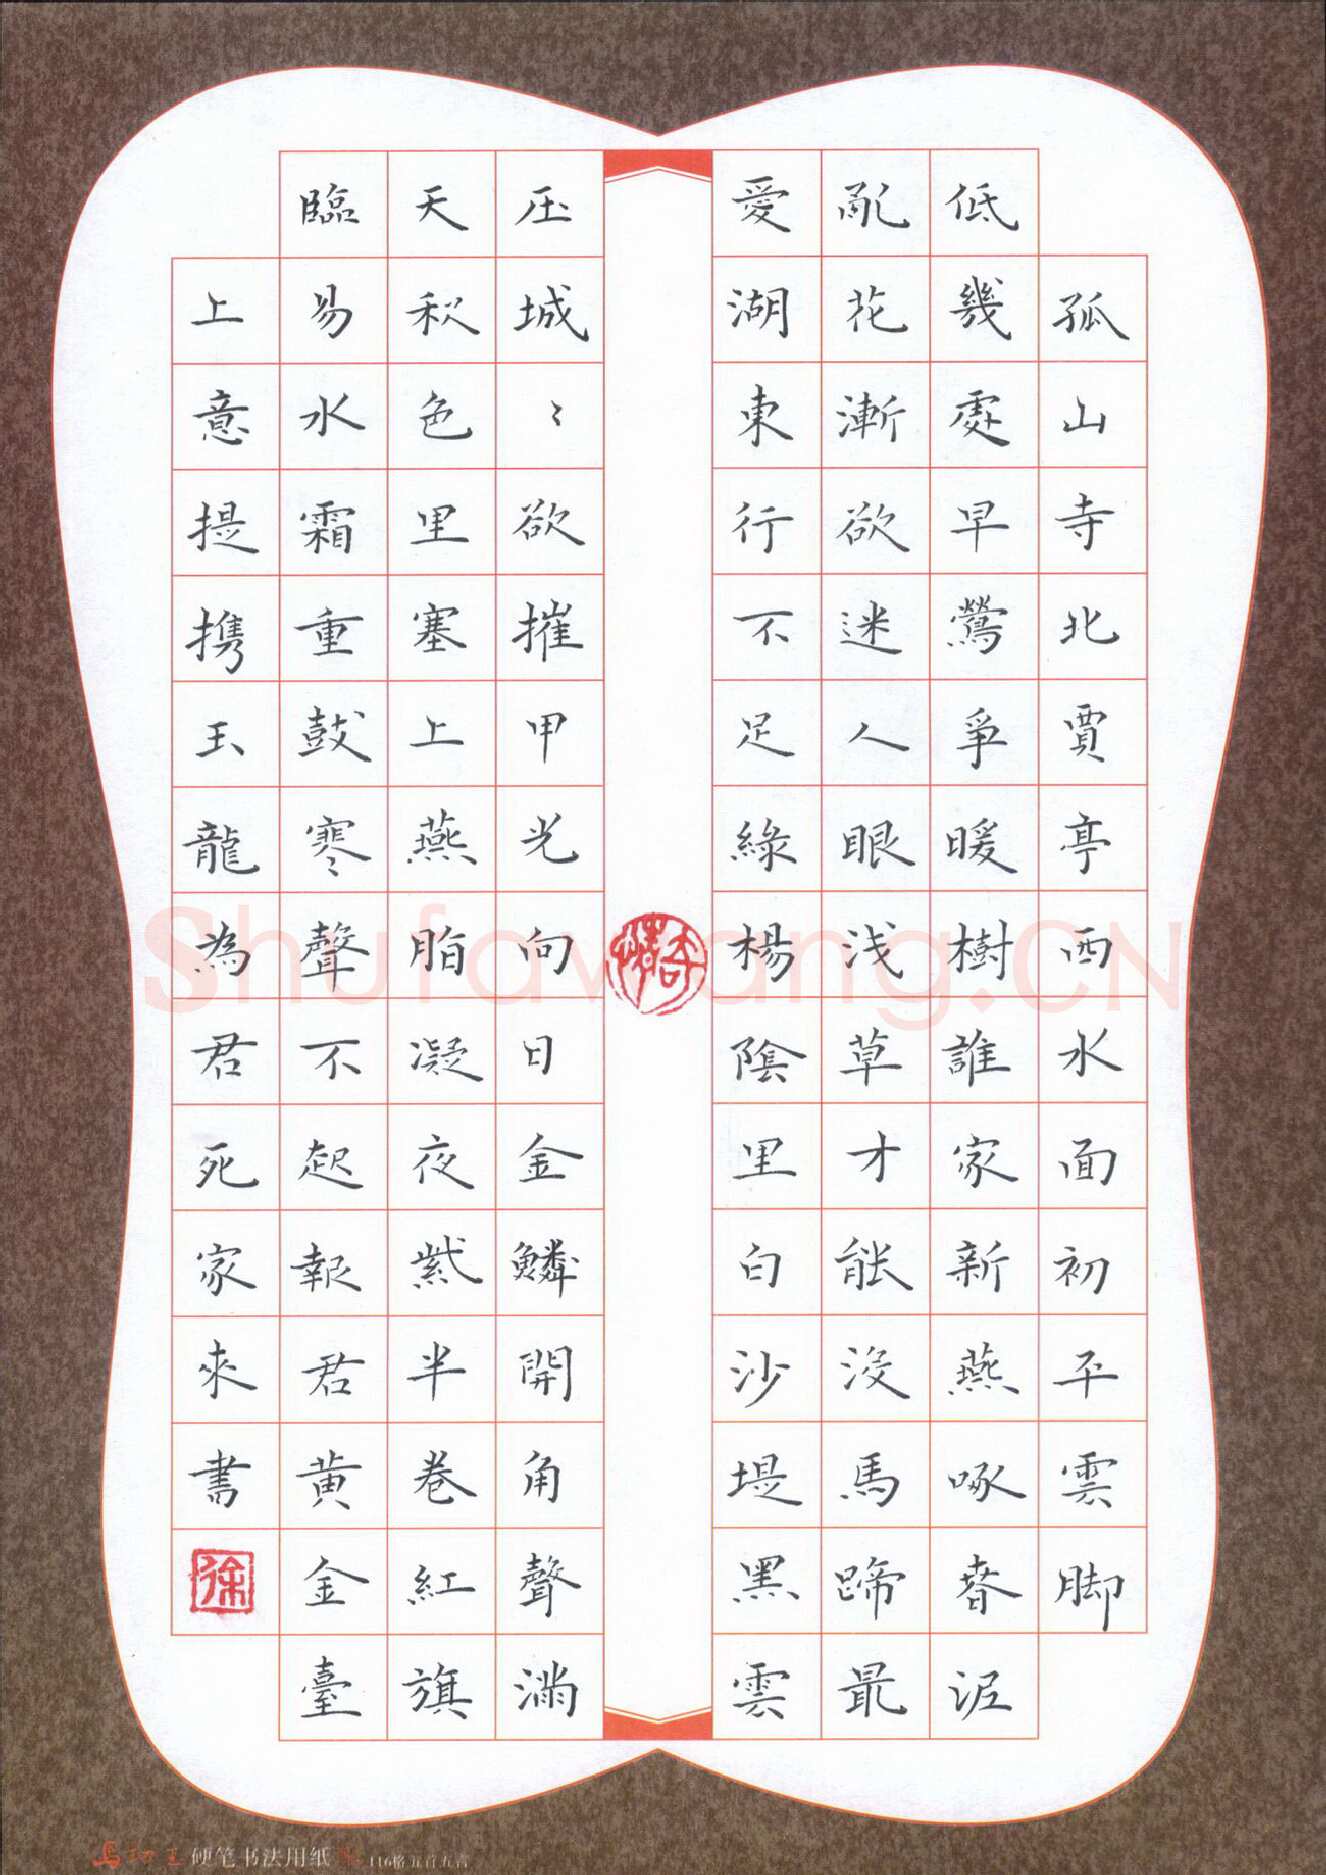 孤山寺北賈亭西水面初平雲脚
低幾處早鶯爭暖樹誰家新燕啄春泥
亂花漸欲迷人眼浅草才能沒馬蹄最
愛湖東行不足綠楊陰里白沙堤黑雲
压城〻欲摧甲光向日金鱗開角聲滿
天秋色里塞上燕脂凝夜紫半卷紅旗
臨易水霜重鼓寒聲不起報君黄金臺
上意提携玉龍為君死家來書
徐
Shufawang.CN
硬笔书法用纸
116格 五首五言